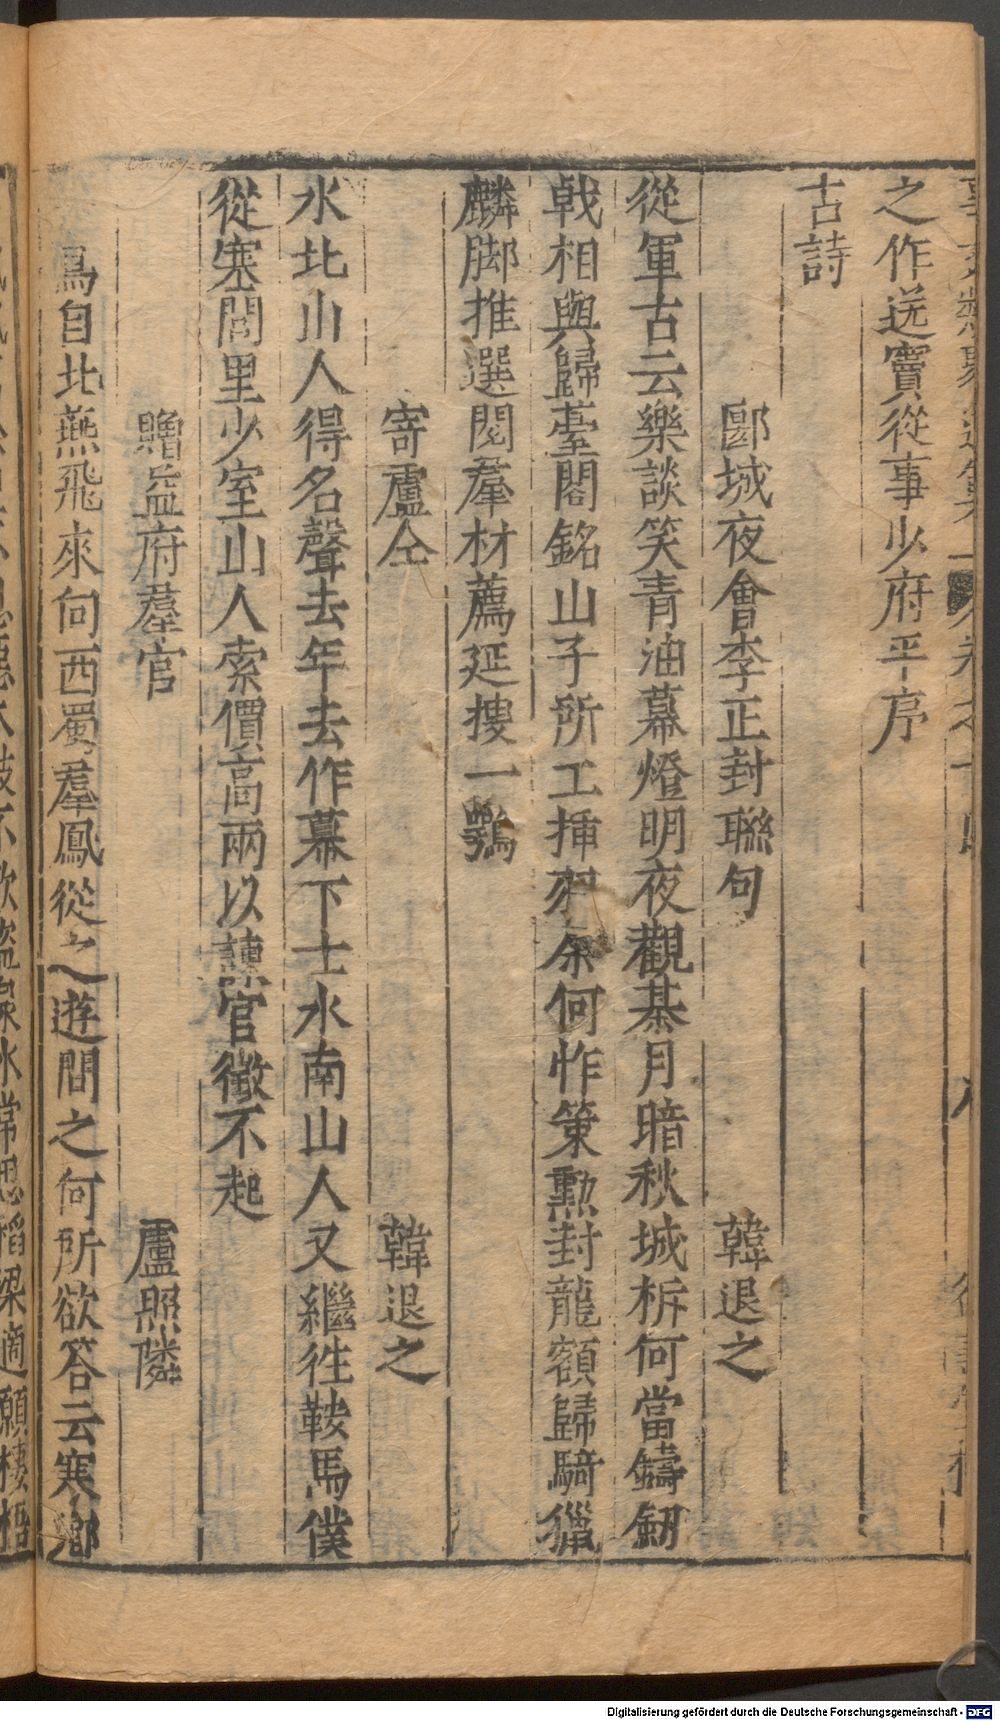 之作送竇從事少府平序
古詩
郾城夜會李正封聯句 韓退之
從軍古云樂談笑青油幕燈明夜觀棊月暗秋城柝何當鑄劒
戟相與歸臺閣銘山子所工插羽余何怍策勲封龍額歸騎獵
麟脚推選閱羣材薦延搜一鶚
寄盧仝 韓退之
水北山人得名聲去年去作幕下士水南山人又繼徃鞍馬僕
從塞閭里少室山人索價髙兩以諫官徵不起
贈益府羣官 盧照隣
鳥自北燕飛來向西蜀羣鳳從之遊問之何所欲答云寒鄉
Digitalisierung gefördert durch die Deutsche Forschungsgemeinschaft - DFG